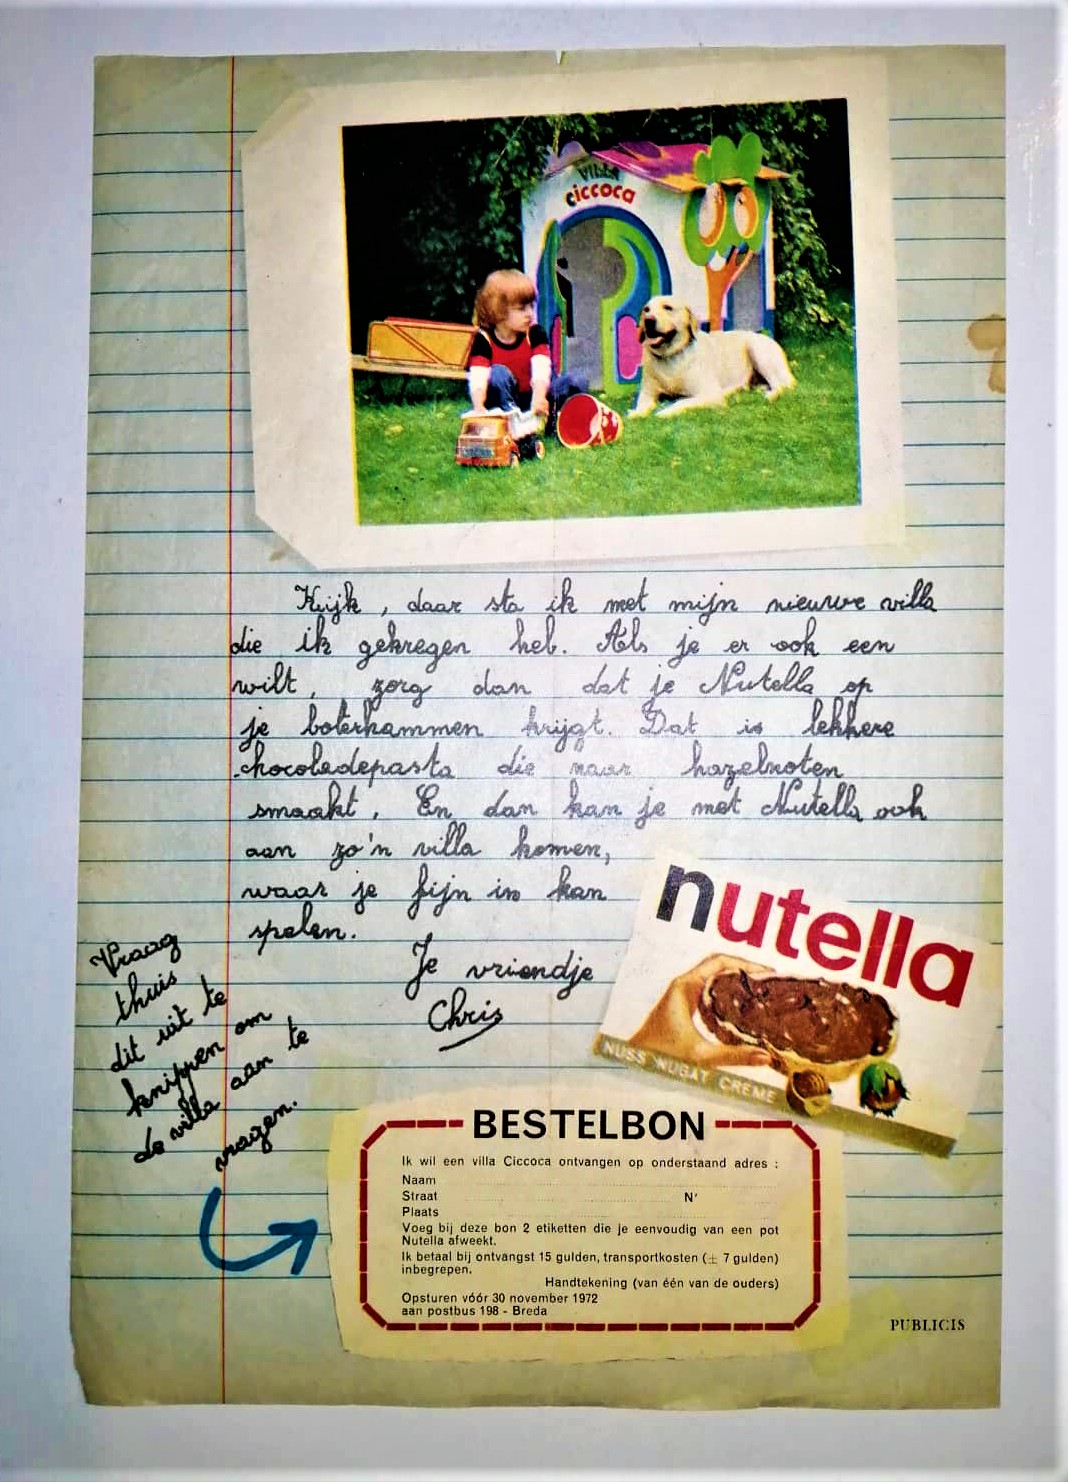 VILLA
ciccoca
Kijk, daar sta ik met mijn nieuwe villa
die ik gekregen heb. Als je er ook een
wilt, zorg dan dat je Nutella op
je boterhammen krijgt. Dat is lekkere
chocoladepasta die naar hazelnoten
smaakt. En dan kan je met Nutella ook
aan zo'n villa komen,
waar je fijn in kan
spelen.
Je vriendje
Chris
Vraag
thuis
dit uit te
knippen om
de villa aan te
vragen.
nutella
NUSS NUGAT CREME
BESTELBON
Ik wil een villa Ciccoca ontvangen op onderstaand adres :
Naam
Straat N'
Plaats
Voeg bij deze bon 2 etiketten die je eenvoudig van een pot
Nutella afweekt.
Ik betaal bij ontvangst 15 gulden, transportkosten (± 7 gulden)
inbegrepen.
Handtekening (van één van de ouders)
Opsturen vóór 30 november 1972
aan postbus 198 - Breda
PUBLICIS